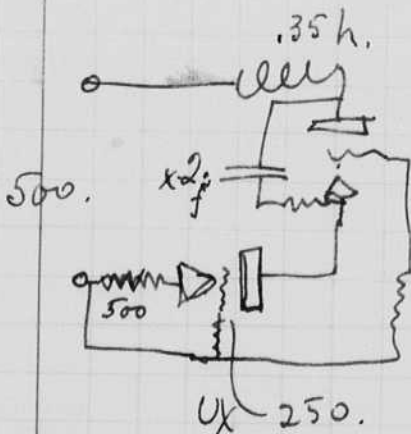 .35 h.
500.
500
UX - 250.